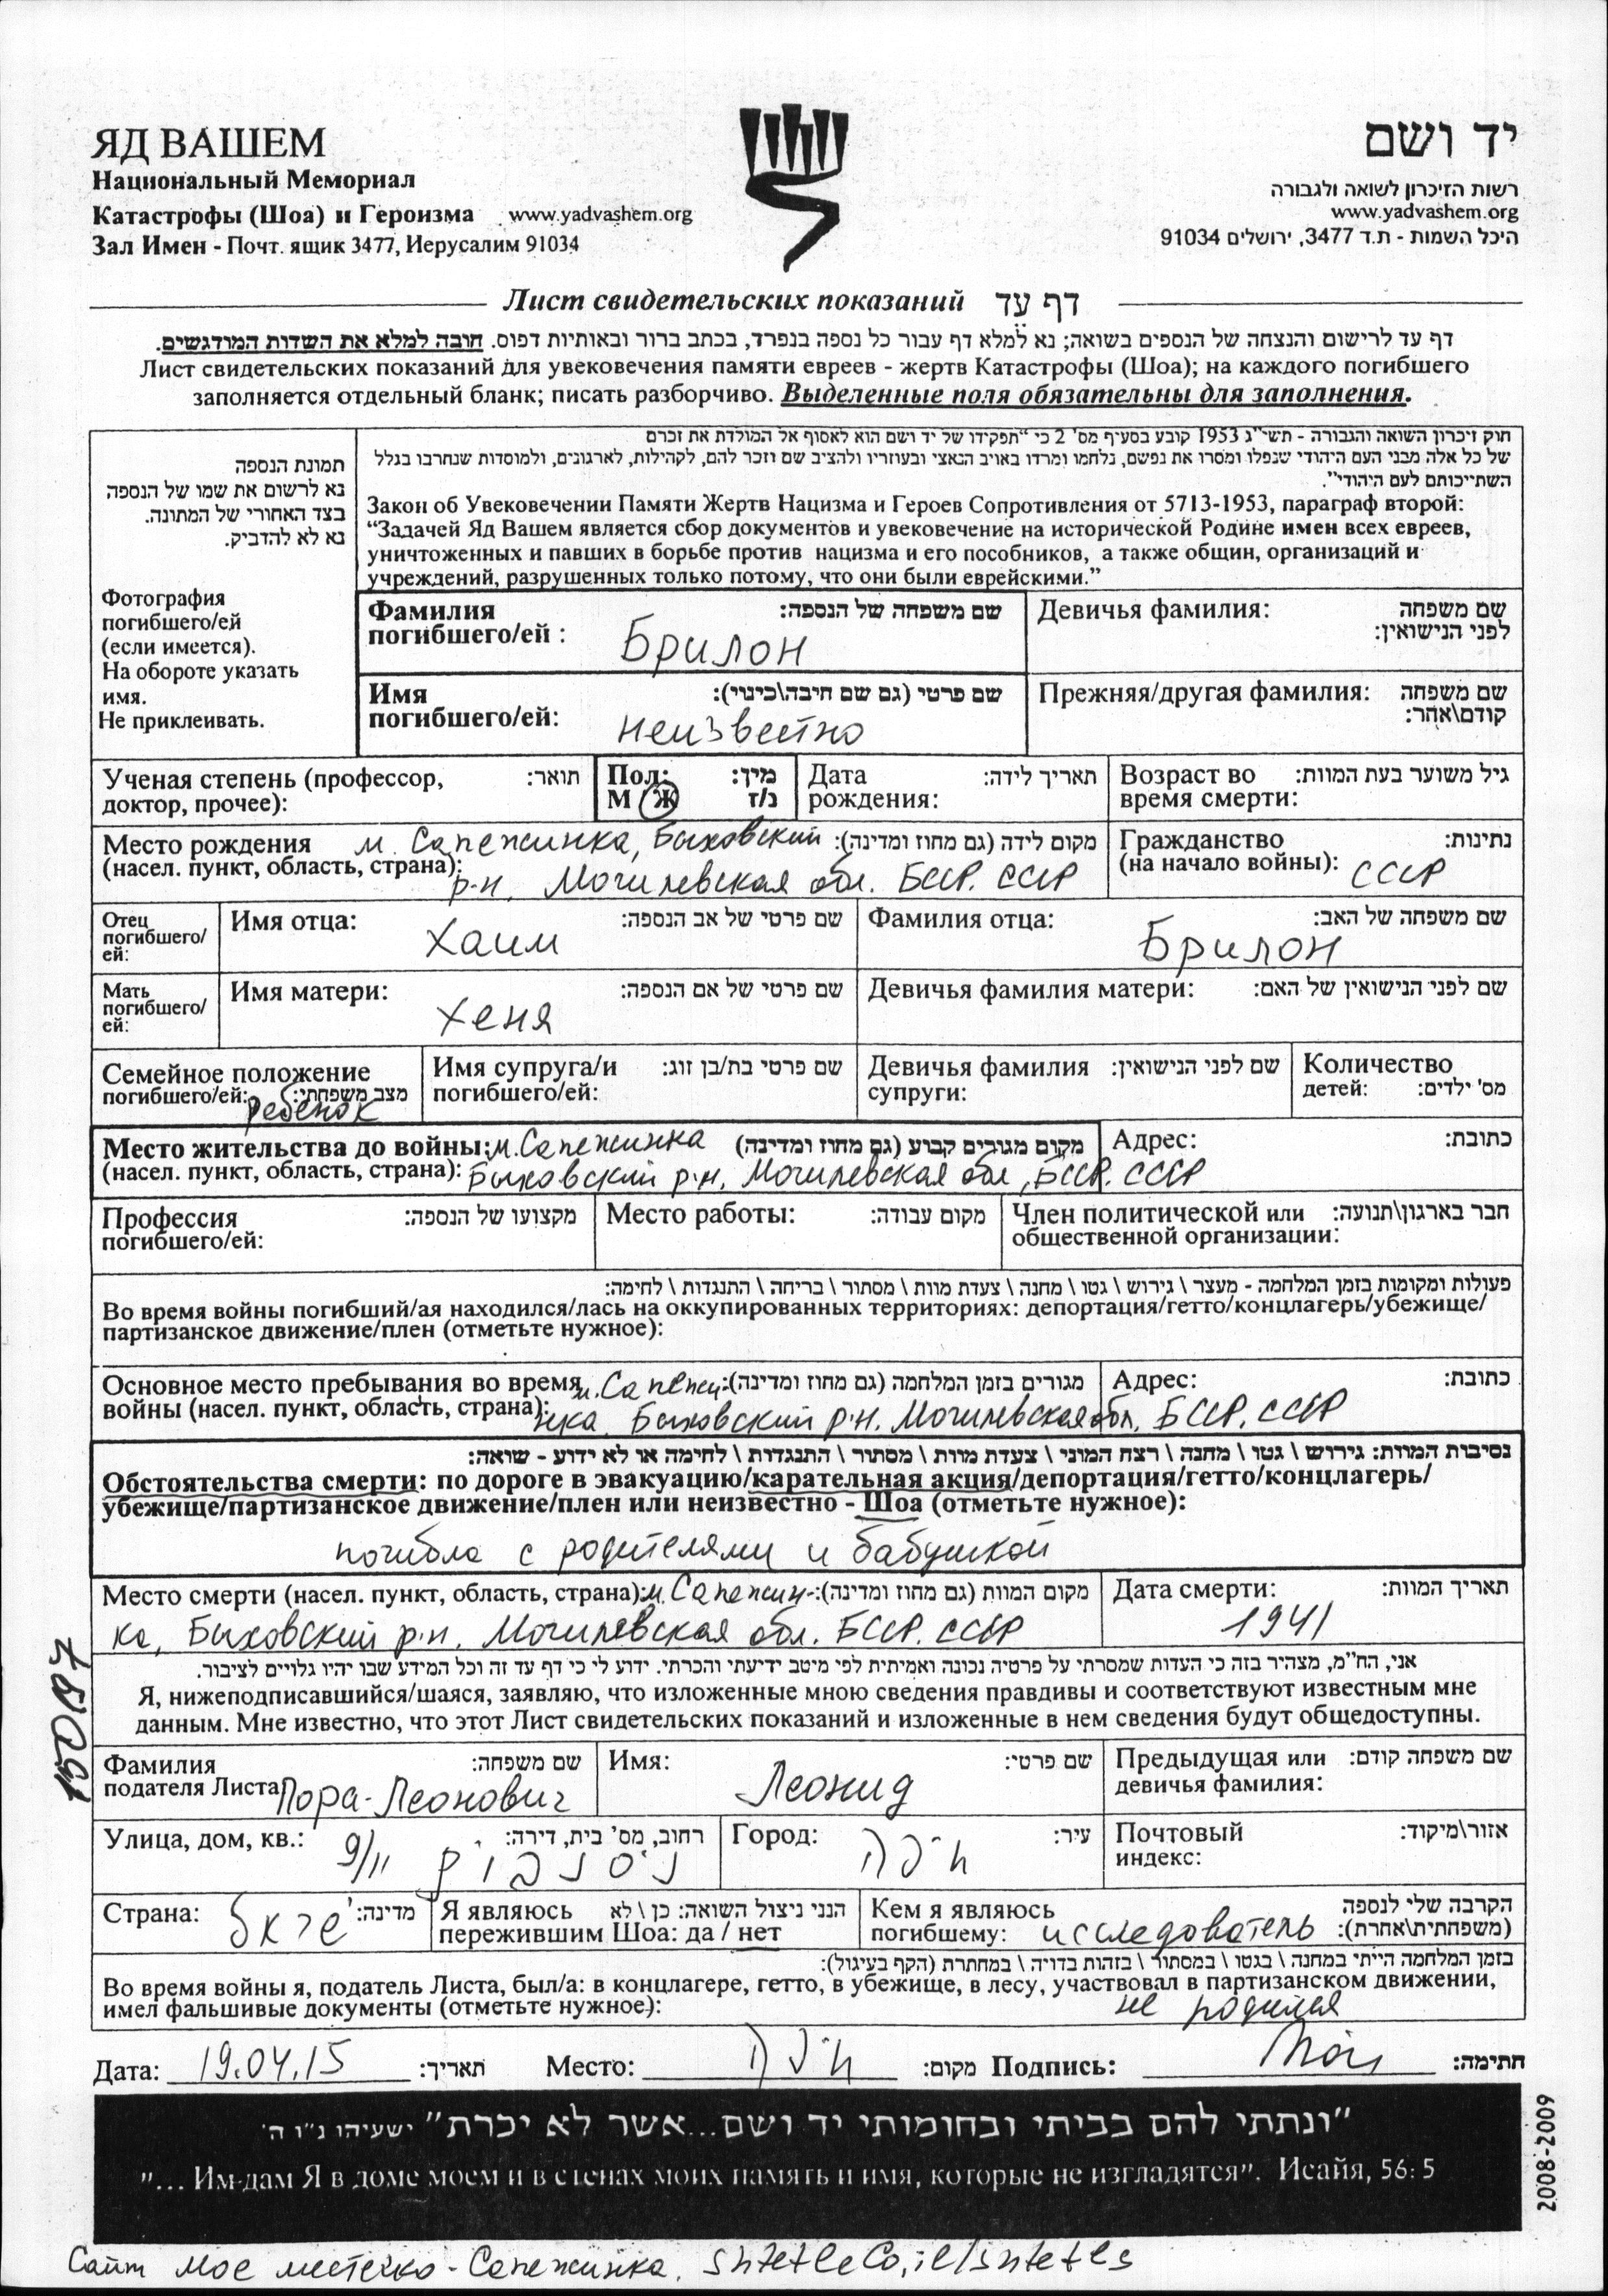 ЯД ВАШЕМ
Национальный Мемориал
Катастрофы (Шоа) и Героизма www.yadvashem.org
Зал Имен - Почт. ящик 3477, Иерусалим 91034
יד ושם
רשות הזיכרון לשואה ולגבורה
www.yadvashem.org
היכל השמות - ת.ד 3477, ירושלים 91034
Лист свидетельских показаний דף עד
דף עד לרישום והנצחה של הנספים בשואה; נא למלא דף עבור כל נספה בנפרד, בכתב ברור ובאותיות דפוס. חובה למלא את השדות המודגשים.
Лист свидетельских показаний для увековечения памяти евреев - жертв Катастрофы (Шоа); на каждого погибшего
заполняется отдельный бланк; писать разборчиво. Выделенные поля обязательны для заполнения.
תמונת הנספה
נא לרשום את שמו של הנספה
בצד האחורי של המתונה.
נא לא להדביק.
Фотография
погибшего/ей
(если имеется).
На обороте указать
имя.
Не приклеивать.
חוק זיכרון השואה והגבורה - תשי"ג 1953 קובע בסעיף מס' 2 כי "תפקידו של יד ושם הוא לאסוף אל המולדת את זכרם
של כל אלה מבני העם היהודי שנפלו ומסרו את נפשם, נלחמו ומרדו באויב הנאצי ובעוזריו ולהציב שם וזכר להם, לקהילות, לארגונים, ולמוסדות שנחרבו בגלל
השתייכותם לעם היהודי".
Закон об Увековечении Памяти Жертв Нацизма и Героев Сопротивления от 5713-1953, параграф второй:
“Задачей Яд Вашем является сбор документов и увековечение на исторической Родине имен всех евреев,
уничтоженных и павших в борьбе против нацизма и его пособников, а также общин, организаций и
учреждений, разрушенных только потому, что они были еврейскими.”
Фамилия שם משפחה של הנספה:
погибшего/ей : Брилон
Девичья фамилия: שם משפחה
לפני הנישואין:
Имя שם פרטי (גם שם חיבה\כינוי):
погибшего/ей: неизвестно
Прежняя/другая фамилия: שם משפחה
קודם\אחר:
Ученая степень (профессор, תואר:
доктор, прочее):
Пол: מין:
М Ж נ/ז
Дата תאריך לידה:
рождения:
Возраст во גיל משוער בעת המוות:
время смерти:
Место рождения м. Сапежинка, Быховский מקום לידה (גם מחוז ומדינה):
(насел. пункт, область, страна): р-н, Могилевская обл. БССР. СССР
Гражданство נתינות:
(на начало войны): СССР
Отец
погибшего/
ей:
Имя отца: Хаим שם פרטי של אב הנספה:
Фамилия отца: Брилон שם משפחה של האב:
Мать
погибшего/
ей:
Имя матери: Хеня שם פרטי של אם הנספה:
Девичья фамилия матери: שם לפני הנישואין של האם:
Семейное положение
погибшего/ей: מצב משפחתי:
ребенок
Имя супруга/и שם פרטי בת/בן זוג:
погибшего/ей:
Девичья фамилия שם לפני הנישואין:
супруги:
Количество
детей: מס' ילדים:
Место жительства до войны: м. Сапежинка מקום מגורים קבוע (גם מחוז ומדינה)
(насел. пункт, область, страна): Быховский р-н, Могилевская обл, БССР. СССР
Адрес: כתובת:
Профессия מקצועו של הנספה:
погибшего/ей:
Место работы: מקום עבודה:
Член политической или חבר בארגון\תנועה:
общественной организации:
פעולות ומקומות בזמן המלחמה - מעצר \ גירוש \ גטו \ מחנה \ צעדת מוות \ מסתור \ בריחה \ התנגדות \ לחימה:
Во время войны погибший/ая находился/лась на оккупированных территориях: депортация/гетто/концлагерь/убежище/
партизанское движение/плен (отметьте нужное):
Основное место пребывания во время м. Сапежи- מגורים בזמן המלחמה (גם מחוז ומדינה):
войны (насел. пункт, область, страна): нка, Быховский р-н. Могилевская обл. БССР. СССР
Адрес: כתובת:
נסיבות המוות: גירוש \ גטו \ מחנה \ רצח המוני \ צעדת מוות \ מסתור \ התנגדות \ לחימה או לא ידוע - שואה:
Обстоятельства смерти: по дороге в эвакуацию/карательная акция/депортация/гетто/концлагерь/
убежище/партизанское движение/плен или неизвестно - Шоа (отметьте нужное):
погибла с родителями и бабушкой
Место смерти (насел. пункт, область, страна): м. Сапежин- מקום המוות (גם מחוז ומדינה):
ка, Быховский р-н, Могилевская обл. БССР. СССР
Дата смерти: תאריך המוות:
1941
אני, הח"מ, מצהיר בזה כי העדות שמסרתי על פרטיה נכונה ואמיתית לפי מיטב ידיעתי והכרתי. ידוע לי כי דף עד זה וכל המידע שבו יהיו גלויים לציבור.
Я, нижеподписавшийся/шаяся, заявляю, что изложенные мною сведения правдивы и соответствуют известным мне
данным. Мне известно, что этот Лист свидетельских показаний и изложенные в нем сведения будут общедоступны.
150197
Фамилия שם משפחה:
подателя Листа Пора-Леонович
Имя: Леонид שם פרטי:
Предыдущая или שם משפחה קודם:
девичья фамилия:
Улица, дом, кв.: רחוב, מס' בית, דירה:
9/11
Город: חיפה עיר:
Почтовый אזור\מיקוד:
индекс:
Страна: ישראל מדינה:
Я являюсь הנני ניצול השואה: כן \ לא
пережившим Шоа: да / нет
Кем я являюсь הקרבה שלי לנספה
погибшему: исследователь (משפחתית\אחרת):
בזמן המלחמה הייתי במחנה \ בגטו \ במסתור \ בזהות בדויה \ במחתרת (הקף בעיגול):
Во время войны я, податель Листа, был/а: в концлагере, гетто, в убежище, в лесу, участвовал в партизанском движении,
имел фальшивые документы (отметьте нужное): не родился
Дата: 19.04.15 תאריך: Место: חיפה מקום: Подпись: חתימה:
"ונתתי להם בביתי ובחומותי יד ושם...אשר לא יכרת" ישעיהו נ"ו ה'
"... Им дам Я в доме моем и в стенах моих память и имя, которые не изгладятся". Исайя, 56: 5
2008-2009
Сайт Мое местечко - Сапежинка. shtetle.co.il/shtetls